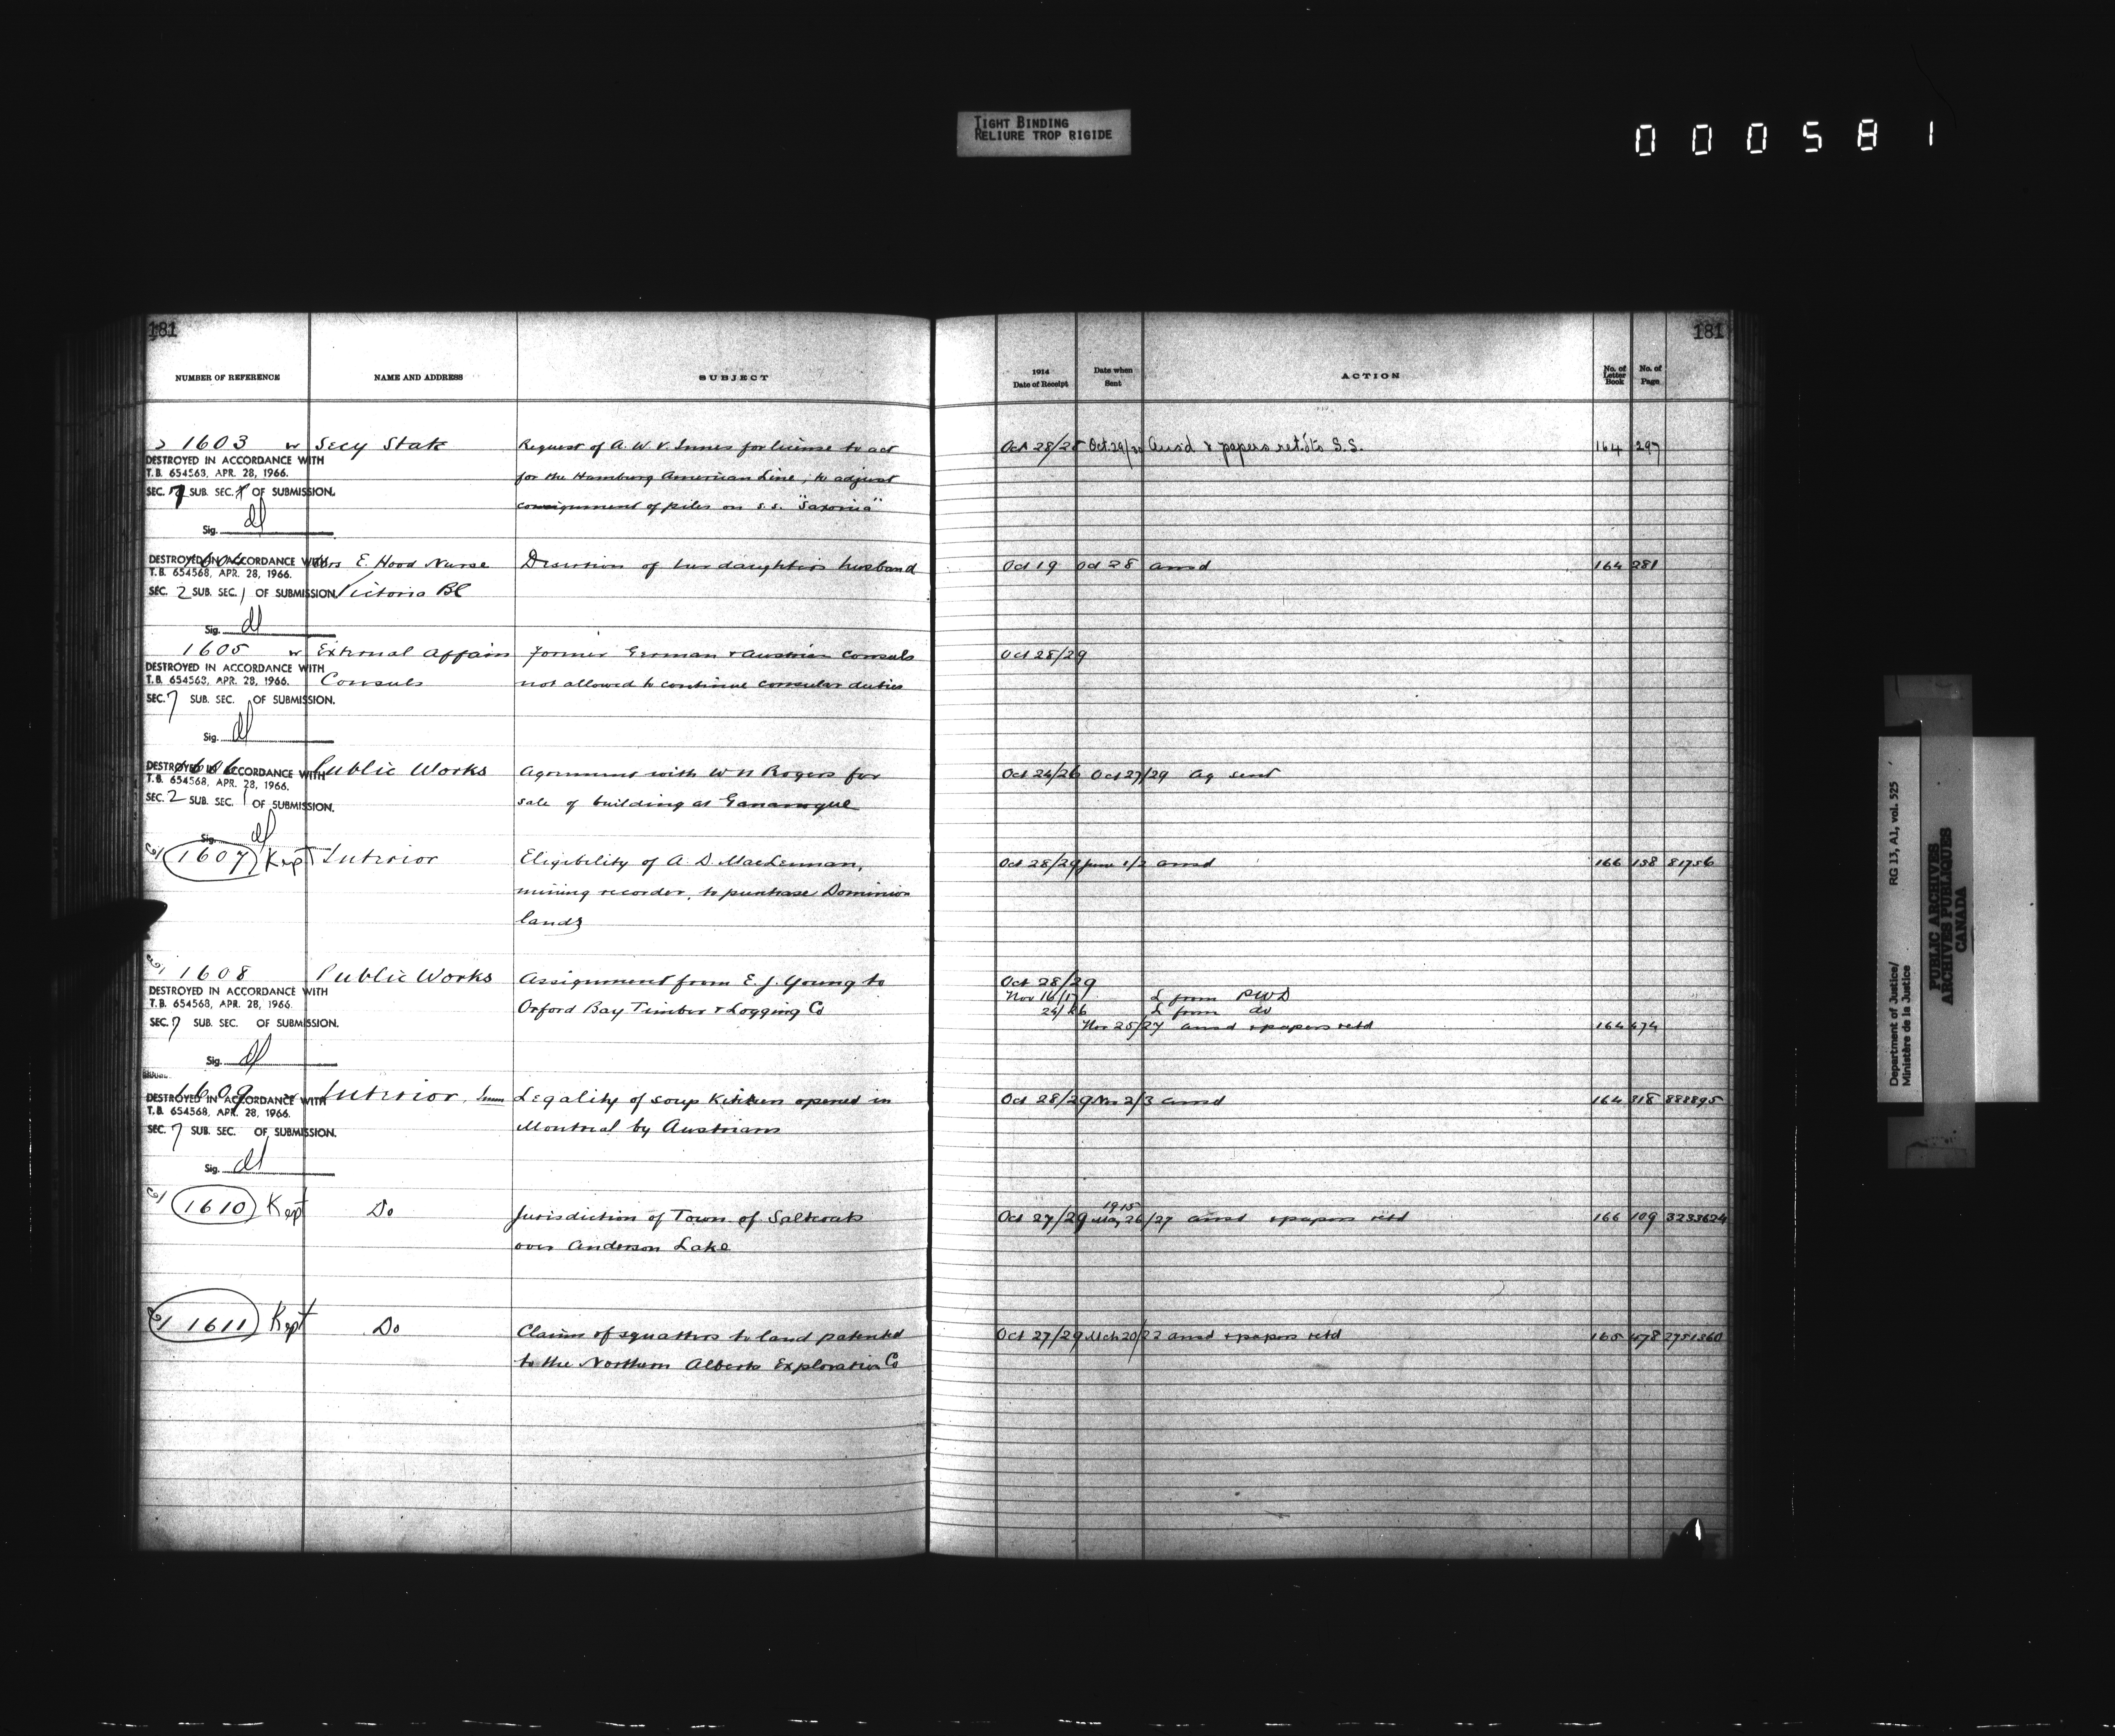 TIGHT BINDING
RELIURE TROP RIGIDE
000581
181
181
NUMBER OF REFERENCE NAME AND ADDRESS SUBJECT 1914 Date of Receipt Date when Sent ACTION No. of Letter Book No. of Page
1603 w Secy State Request of A. W. V. Innes for license to act Oct 28/28 Oct. 29/30 Ans'd & papers ret. to S.S. 164 297
DESTROYED IN ACCORDANCE WITH
T.B. 654568, APR. 28, 1966. for the Hamburg American Line; to adjust
SEC. 7 SUB. SEC. OF SUBMISSION.
consignment of piles on s.s. "Saxonia"
Sig. dl
1604 Mrs E. Hood Nurse Desertion of her daughter's husband Oct 19 Oct 28 ansd 164 281
DESTROYED IN ACCORDANCE WITH
T.B. 654568, APR. 28, 1966.
SEC. 2 SUB. SEC. 1 OF SUBMISSION. Victoria BC
Sig. dl
1605 w External Affairs Former German & Austrian Consuls Oct 28/29
DESTROYED IN ACCORDANCE WITH
T.B. 654568, APR. 28, 1966. Consuls not allowed to continue consular duties
SEC. 7 SUB. SEC. OF SUBMISSION.
Sig. dl
1606 Public Works Agreement with W H Rogers for Oct 24/26 Oct 27/29 Ag sent
DESTROYED IN ACCORDANCE WITH
T.B. 654568, APR. 28, 1966.
SEC. 2 SUB. SEC. 1 OF SUBMISSION. sale of building at Gananoque
Sig. dl
1607 Kept Interior Eligibility of A. D. MacLennan, Oct 28/29 June 1/2 ansd 166 158 81756
mining recorder, to purchase Dominion
lands
1608 Public Works Assignment from E. J. Young to Oct 28/29
DESTROYED IN ACCORDANCE WITH Nov 16/17 L from PWD
T.B. 654568, APR. 28, 1966. Orford Bay Timber & Logging Co 24/26 L from do
SEC. 7 SUB. SEC. OF SUBMISSION. Nov 25/27 ansd & papers retd 164 474
Sig. dl
1609 Interior, Imm Legality of soup kitchen opened in Oct 28/29 Nov 2/3 ansd 164 318 888895
DESTROYED IN ACCORDANCE WITH
T.B. 654568, APR. 28, 1966.
SEC. 7 SUB. SEC. OF SUBMISSION. Montreal by Austrians
Sig. dl
1610 Kept Do Jurisdiction of Town of Saltcoats Oct 27/29 1915 May 26/27 ansd & papers retd 166 109 3233624
over Anderson Lake
1611 Kept Do Claims of squatters to land patented Oct 27/29 Mch 20/22 ansd & papers retd 165 478 2751360
to the Northern Alberta Exploration Co
Department of Justice/ RG 13, A1, vol. 525
Ministère de la Justice
PUBLIC ARCHIVES
ARCHIVES PUBLIQUES
CANADA